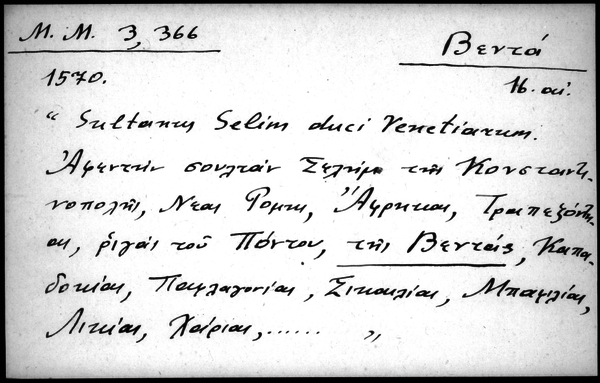 M. M. 3, 366
Βεντά
1570.
16. αἰ.
“ Sultanus Selim duci Venetiarum.
Ἀφεντὴν σουλτὰν Σελὴμ τῆς Κονσταντι-
νοπολῆς, Νεας Ρομης, Ἀφρηκας, Τραπεξόντη-
ας, ῥιγάς τοῦ Πόντου, τῆς Βεντάς, Καπα-
δοκίας, Παφλαγονίας, Σικαιλίας, Μπαφλίας,
Λικίας, Χαίριας,...... ”